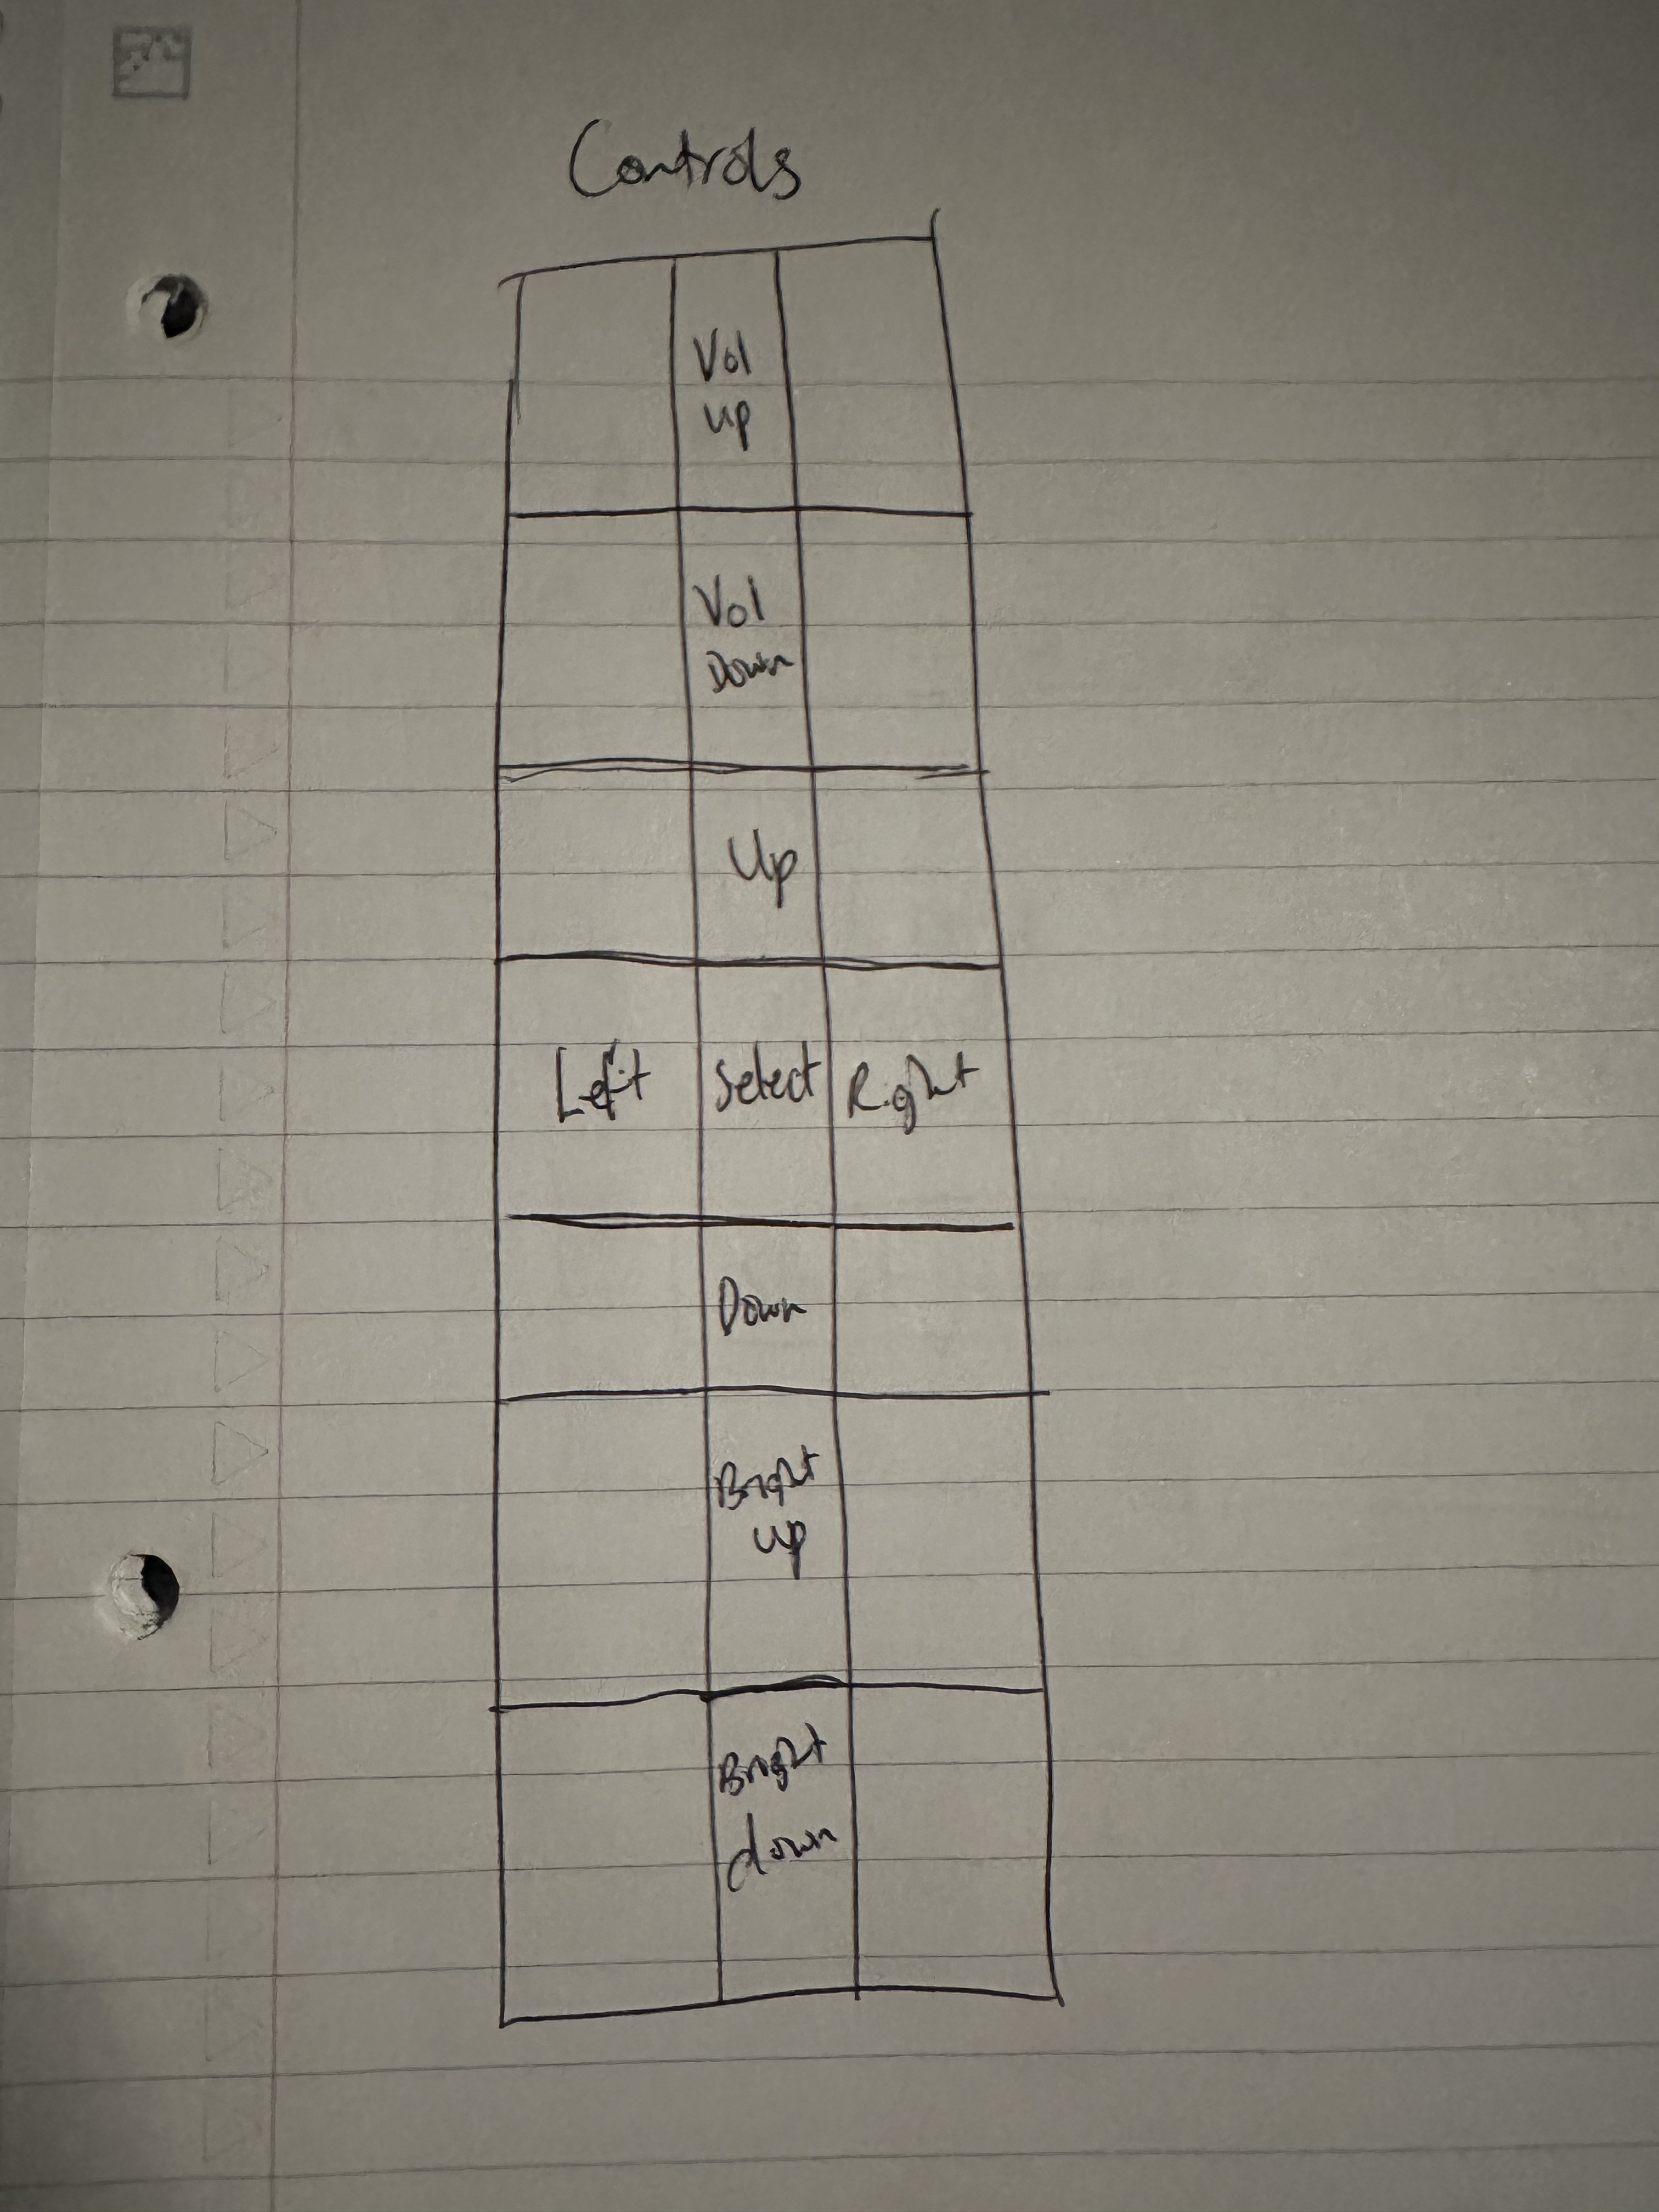 Controls
Vol
up
Vol
Down
Up
Left Select Right
Down
Bright
up
Bright
down